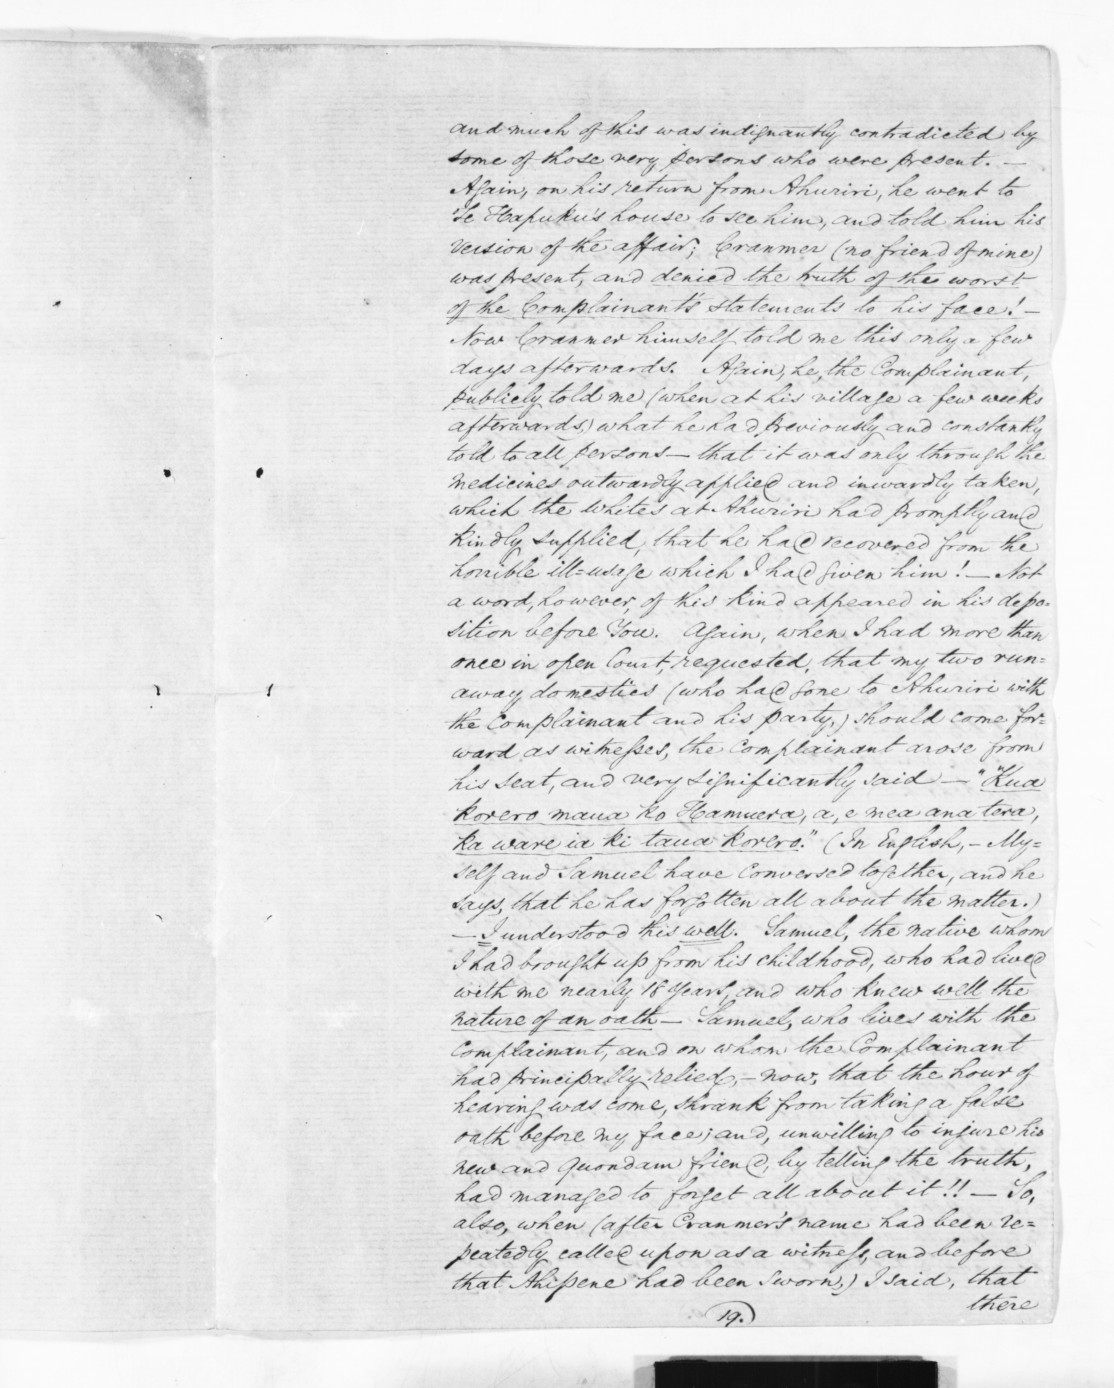 and much of this was indignantly contradicted by
some of those very persons who were present. —
Again, on his return from Ahuriri, he went to
Te Hapuku's house to see him, and told him his
version of the affair; Cranmer (no friend of mine)
was present, and denied the truth of the worst
of the Complainant's statements to his face! —
Now Cranmer himself told me this only a few
days afterwards. Again, he, the Complainant,
publicly told me (when at his village a few weeks
afterwards) what he had previously and constantly
told to all persons — that it was only through the
medicines outwardly applied and inwardly taken,
which the whites at Ahuriri had promptly and
kindly supplied, that he had recovered from the
horrible ill=usage which I had given him! — Not
a word, however, of this kind appeared in his depo-
sition before You. Again, when I had more than
once in open Court, requested, that my two run=
away domestics (who had gone to Ahuriri with
the Complainant and his party,) should come for=
ward as witnesses, the Complainant arose from
his seat, and very significantly said — "Kua
korero maua ko Hamuera, a, e mea ana tera,
ka ware ia ki taua korero." (In English, — My=
self and Samuel have conversed together, and he
says, that he has forgotten all about the matter.)
— I understood this well. Samuel, the native whom
I had brought up from his childhood, who had lived
with me nearly 18 years, and who knew well the
nature of an oath — Samuel, who lives with the
Complainant, and on whom the Complainant
had principally relied, — now, that the hour of
hearing was come, shrank from taking a false
oath before my face; and, unwilling to injure his
new and quondam friend, by telling the truth,
had managed to forget all about it!! — So,
also, when (after Cranmer's name had been re=
peatedly called upon as a witness, and before
that Ahipene had been sworn,) I said, that
there
19.